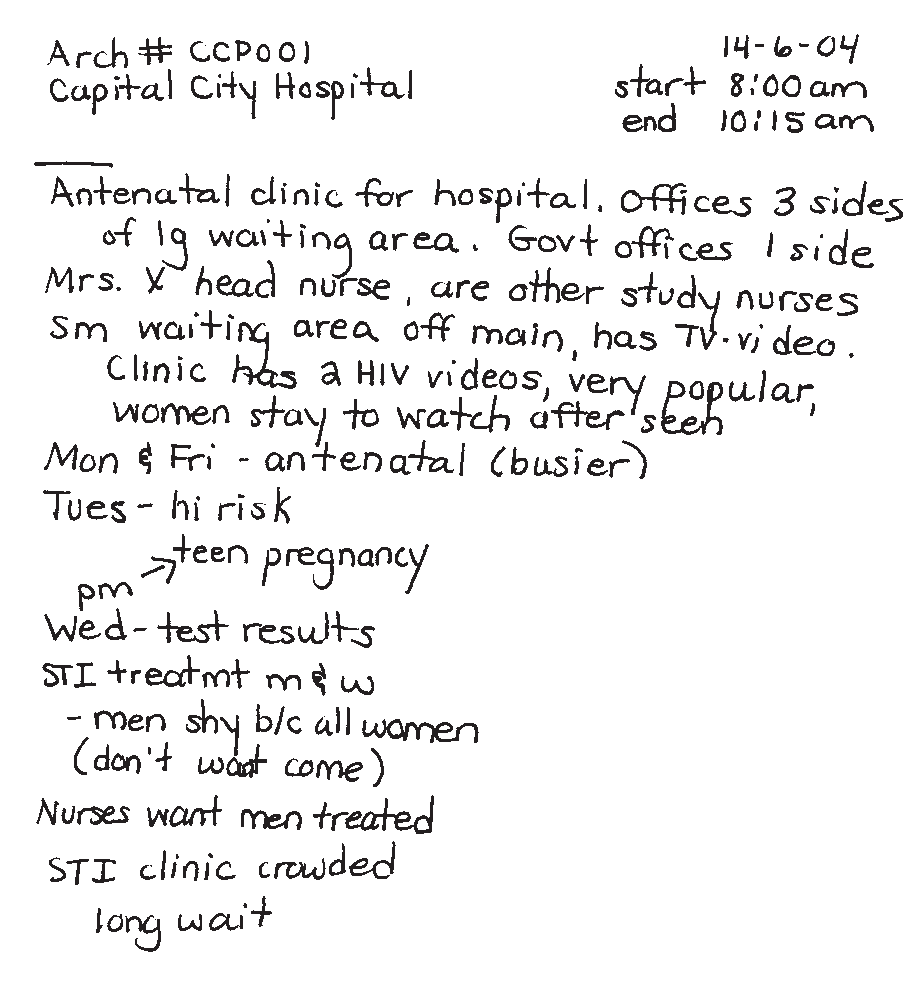 Arch # CCP001
14-6-04
Capital City Hospital
start 8:00 am
end 10:15 am
Antenatal clinic for hospital. Offices 3 sides
of lg waiting area. Govt offices 1 side
Mrs. X head nurse, are other study nurses
Sm waiting area off main, has TV-video.
Clinic has 2 HIV videos, very popular,
women stay to watch after seen
Mon & Fri - antenatal (busier)
Tues - hi risk
teen pregnancy
pm →
Wed - test results
STI treatmt m & w
- men shy b/c all women
(don't want come)
Nurses want men treated
STI clinic crowded
long wait